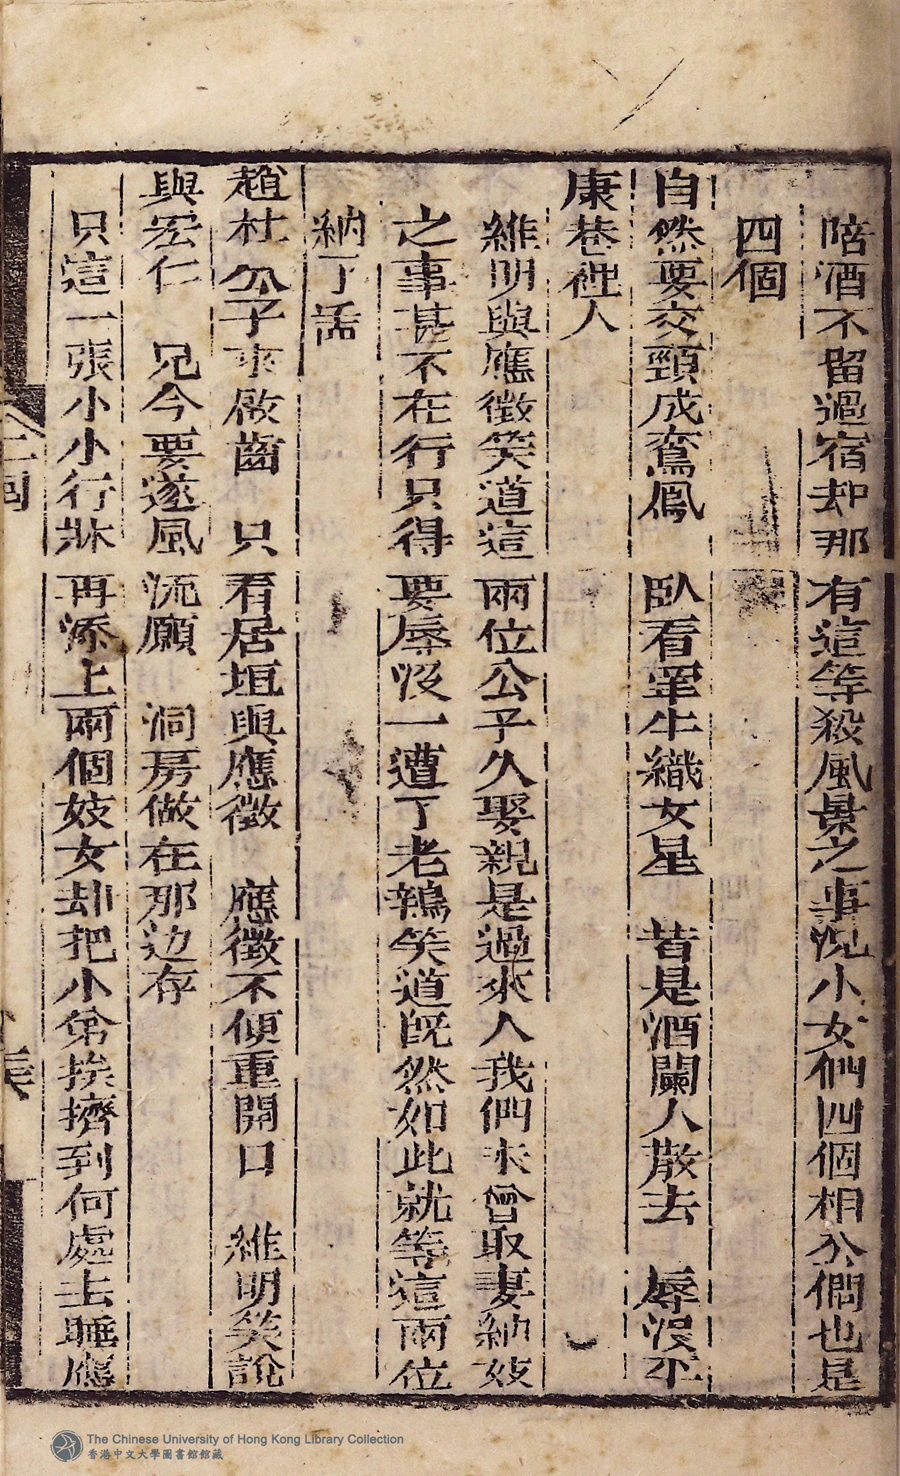 陪酒不留過宿却那有這等殺風景之事況小女們四個相公們也是
四個
自然要交頸成鸞鳳　臥看牽牛織女星　昔是酒闌人散去　辱沒平
康巷裡人
維明與應徵笑道這兩位公子久娶親是過來人我們未曾取妻納妓
之事甚不在行只得要辱沒一遭了老鴇笑道既然如此就等這兩位
納了罷
趙杜公子來啟齒　只看居垣與應徵　應徵不傾重開口　維明笑說
與宏仁　兄今要遂風流願　洞房做在那边存
只這一張小小行牀再添上兩個妓女却把小弟挨擠到何處去睡應
The Chinese University of Hong Kong Library Collection
香港中文大學圖書館館藏